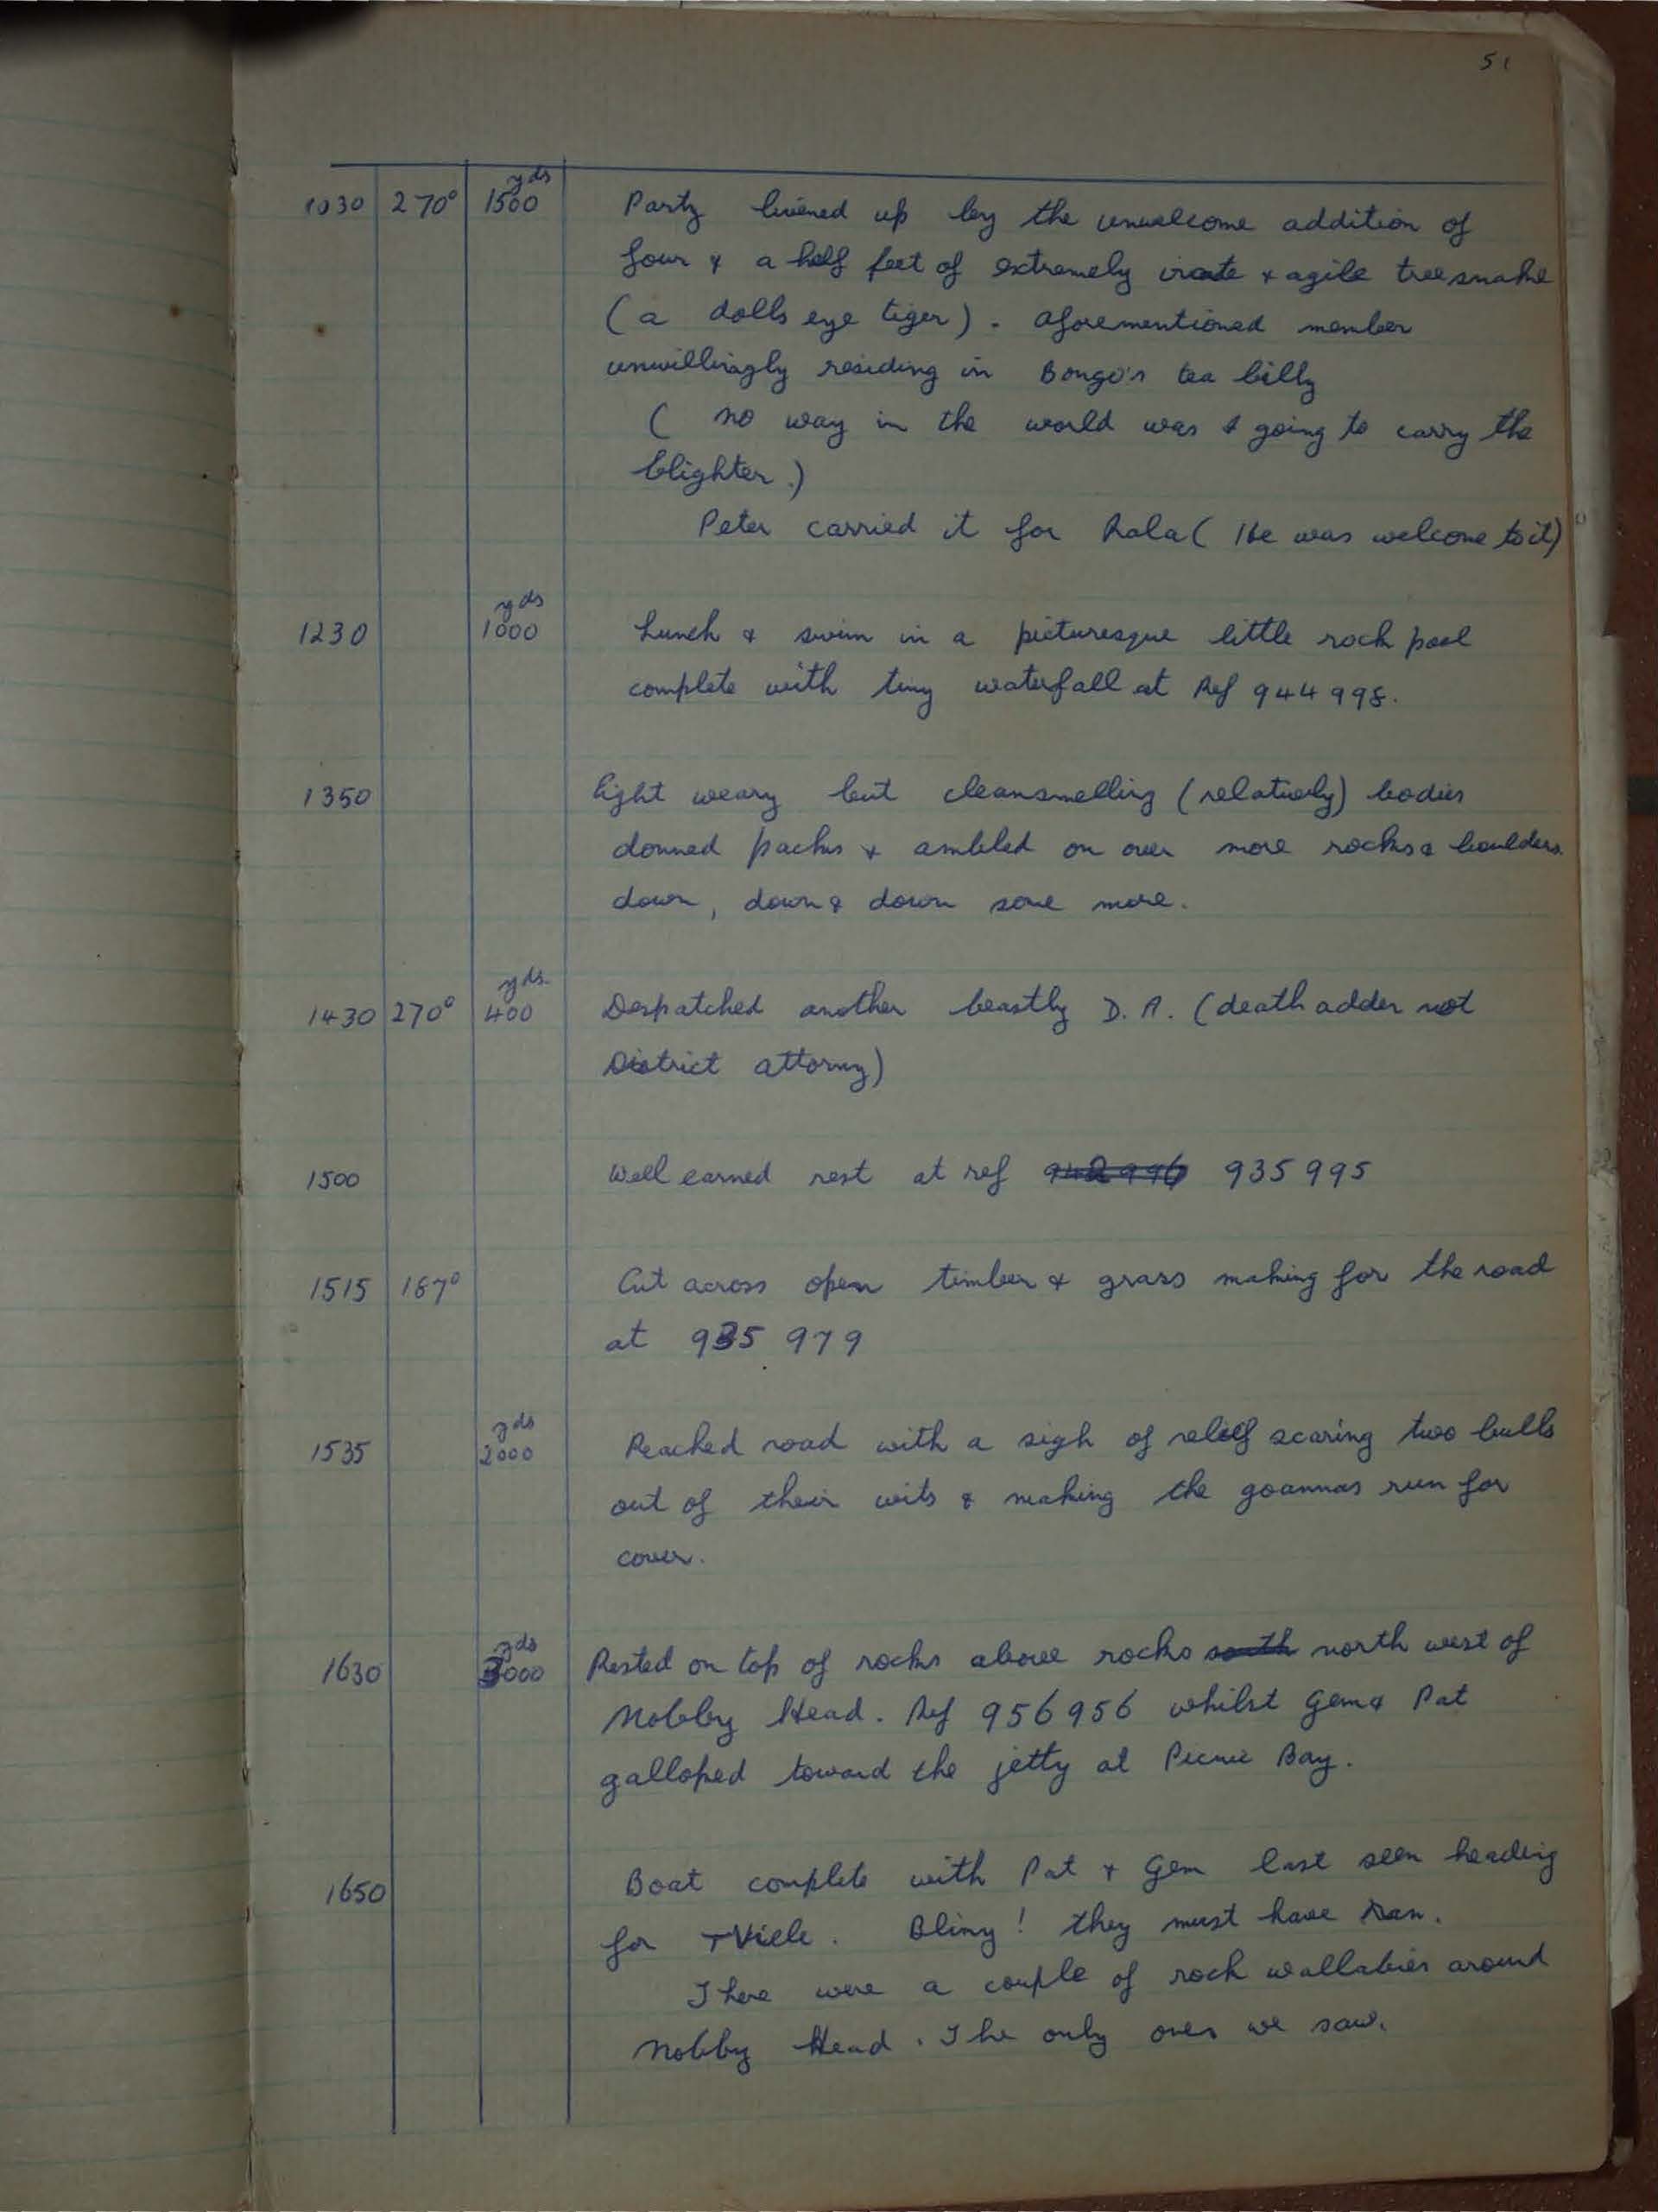 51
yds
1030 270° 1500 Party livened up by the unwelcome addition of
four & a half feet of extremely irate & agile treesnake
(a dolls eye tiger). aforementioned member
unwillingly residing in Bongo's tea billy
( no way in the world was I going to carry the
blighter.)
Peter carried it for Rala ( He was welcome to it)
yds
1230 1000 Lunch & swim in a picturesque little rock pool
complete with tiny waterfall at Ref 944998.
1350 Eight weary but cleansmelling (relatively) bodies
donned packs & ambled on over more rocks & boulders
down, down & down some more.
yds.
1430 270° 400 Despatched another beastly D.A. (death adder not
District attorny)
1500 Well earned rest at ref 942996 935995
1515 187° Cut across open timber & grass making for the road
at 935 979
yds
1535 2000 Reached road with a sigh of relief scaring two bulls
out of their wits & making the goannas run for
cover.
yds
1630 3000 Rested on top of rocks above rocks south north west of
Nobby Head. Ref 956956 whilst Gem & Pat
galloped toward the jetty at Picnic Bay.
1650 Boat complete with Pat & Gem last seen heading
for TVille. Blimy! they must have ran.
There were a couple of rock wallabies around
Nobby Head. The only ones we saw.